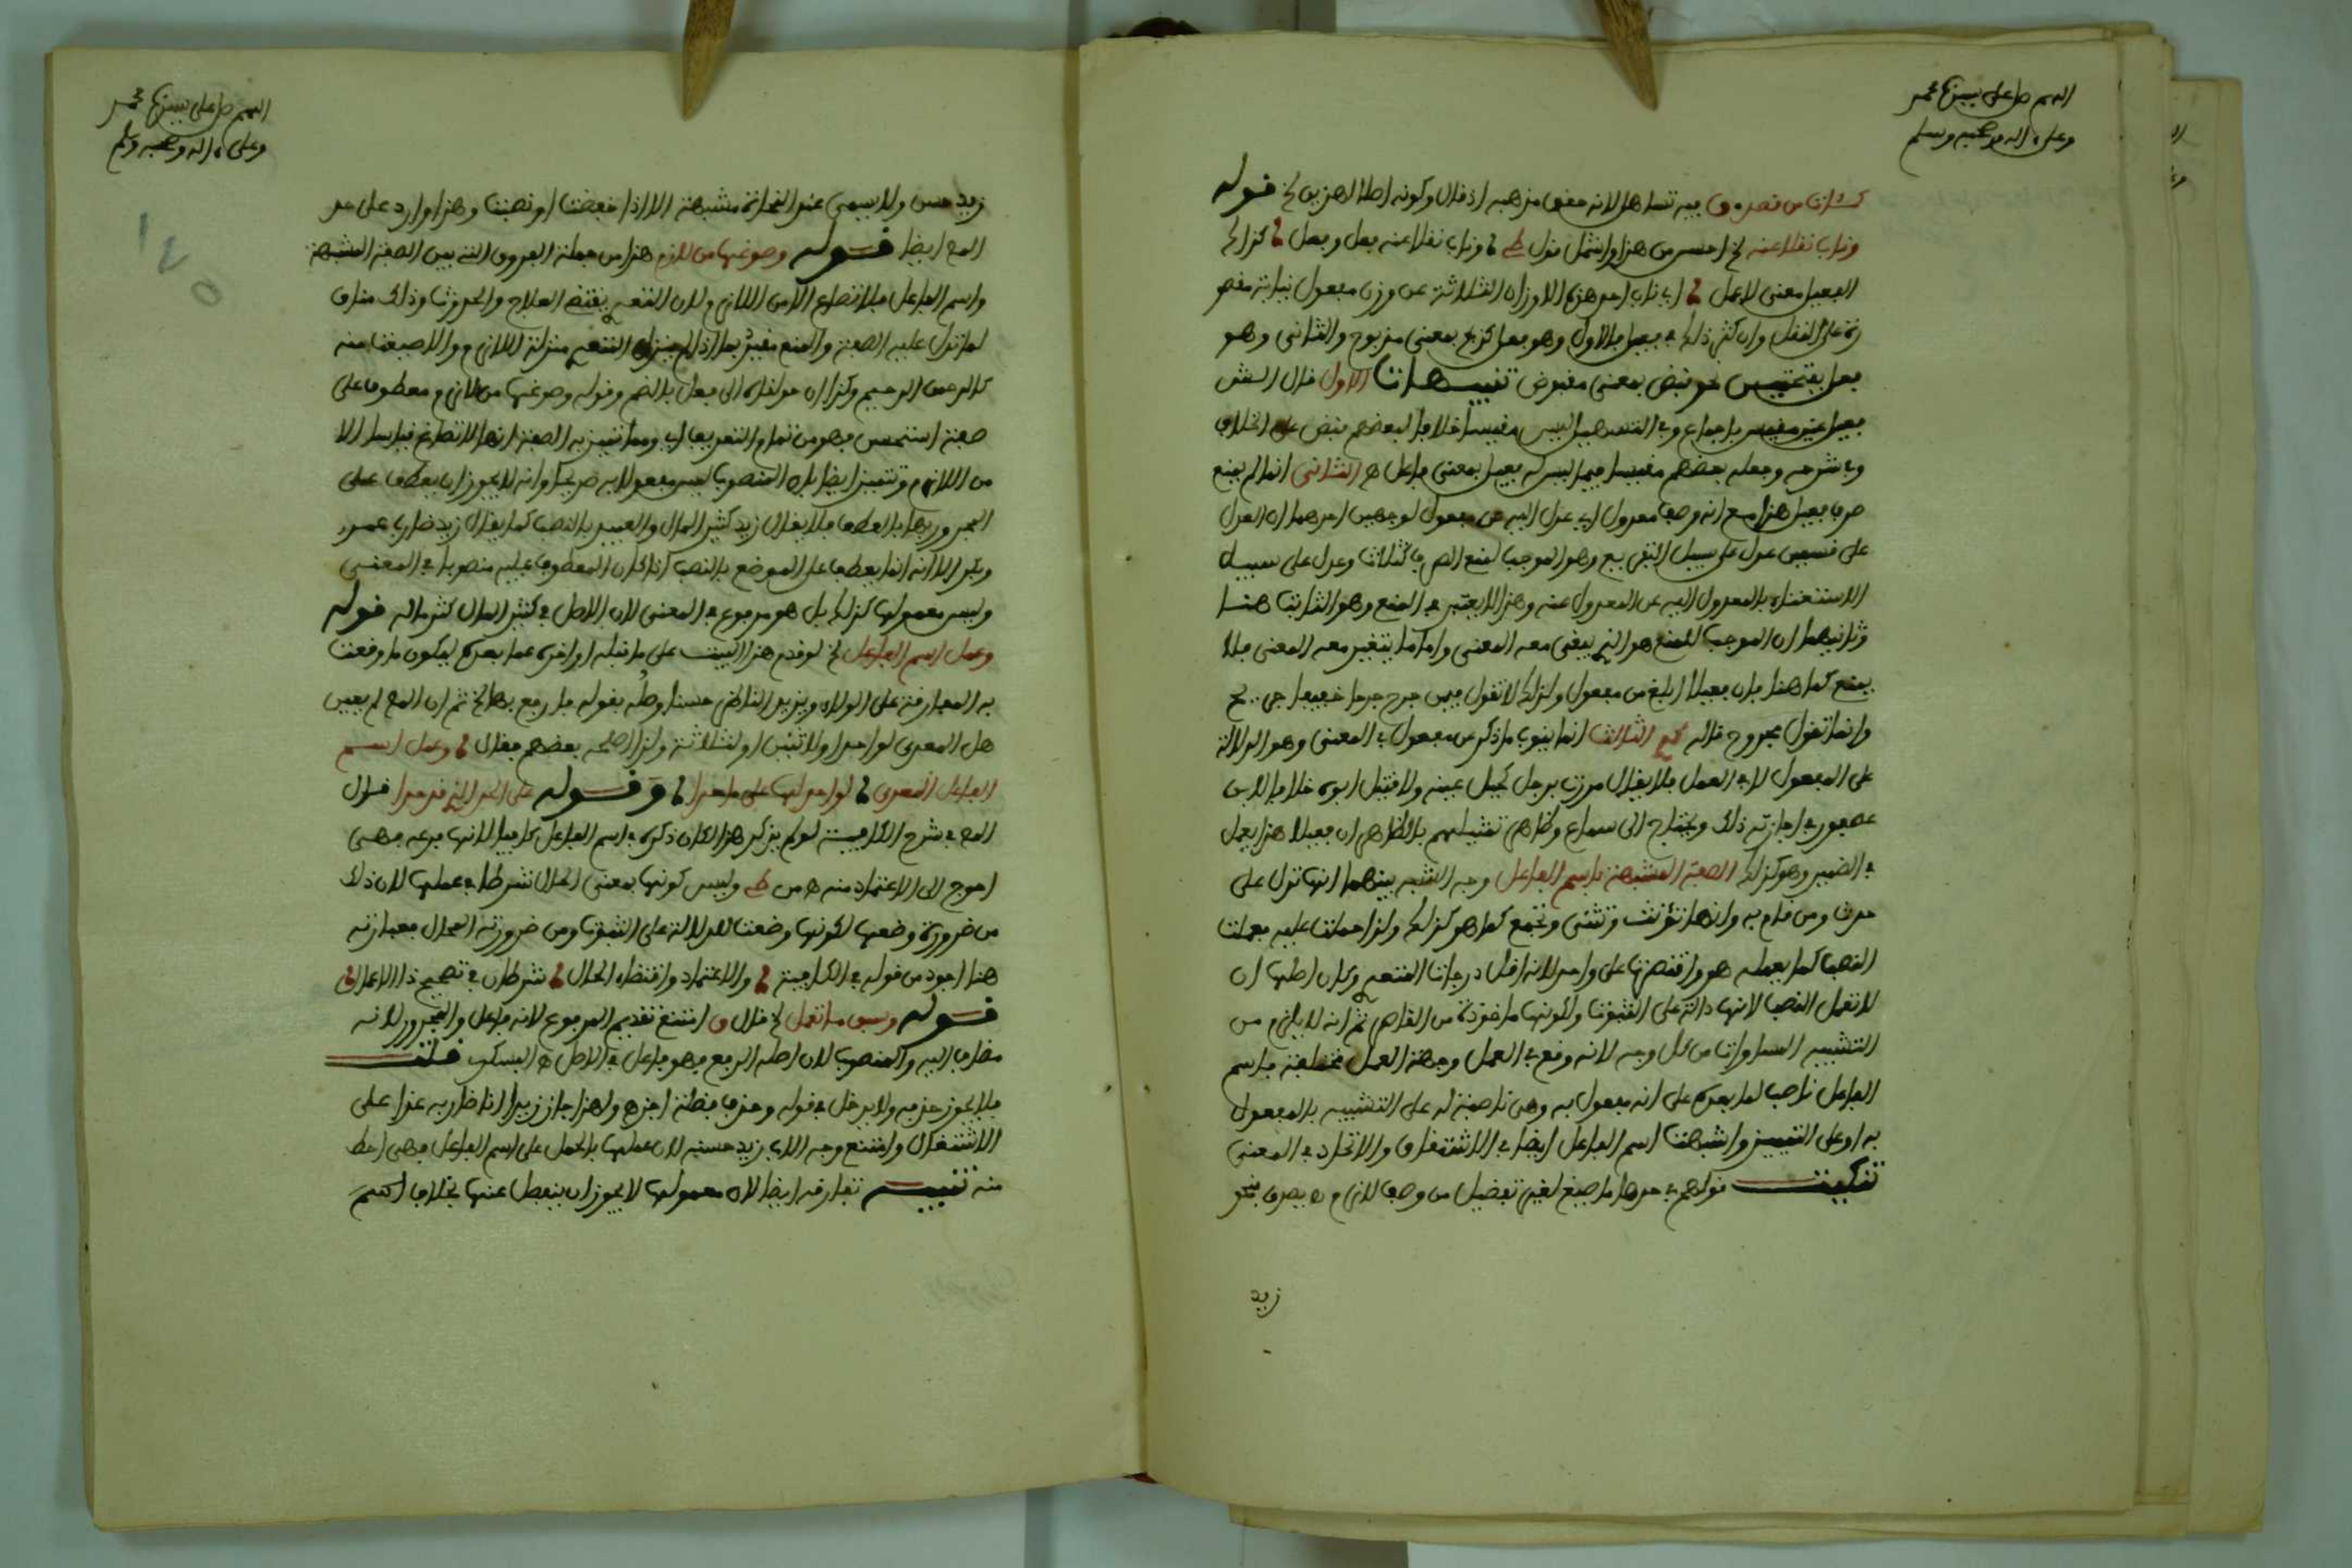 اللهم صل على سيدنا محمد
وعلى اله وصحبه وسلم
كذات من قصد وف فيه تساهل لانه مذهبه اذ قال وكونه اصلا لهذين الخ قوله
وناب نقلا عنه الخ احسن من هذا واشمل قول وناب نقلا عنه فعل وفعل كذا
الفعيل معنى لا عمل اي ناب احد هذه الاوزان الثلاثة عن وزن مفعول نيابة مقصو
رة على النقل وان كثر ذلك في فعيل فالاول وهو فعل كذبح بمعنى مذبوح والثاني وهو
فعل بفتحتين نحو قبض بمعنى مقبوض تنبيهات الاول قال الش
فعيل غير مقيس باجماع وفي التسهيل ليس مقيسا خلافا لبعضهم فنص على الخلاف
وفي شرحه وجعله بعضهم مقيسا فيما ليس له فعيل بمعنى فاعل ه الثاني انما لم يمنع
صرف فعيل هذا مع انه وصف معدول اي عدل اليه عن مفعول لوجهين احدهما ان العدل
على قسمين عدل على سبيل التفريع وهو الموجب لمنع الصرف كثلاث وعدل على سبيل
الاستغناء بالمعدول اليه عن المعدول عنه وهذا لا يعتبر في المنع وهو الثابت هنا
وثانيهما ان الموجب للمنع هو الذي يبقى معه المعنى واما ما يتغير معه المعنى فلا
يمنع كما هنا فان فعيلا ابلغ من مفعول ولذلك لا تقول فيمن جرح جرحا خفيفا جريح
وانما تقول مجروح قاله الثالث انما ينوب ما ذكر عن مفعول في المعنى وهو الدلالة
على المفعول لا في العمل فلا يقال مررت برجل كحيل عينه ولا قتيل ابوه خلافا لابن
عصفور في اجازته ذلك ويحتاج الى سماع وظاهر تمثيلهم بالظاهر ان فعيلا هذا يعمل
في الضمير وهو كذلك الصفة المشبهة باسم الفاعل وجه الشبه بينهما انها تدل على
حدث ومن قام به وانها تؤنث وتثنى وتجمع كما هو كذلك ولذا حملت عليه فعملت
النصب كما يعمله هو واقتصرتها على واحد لانه اقل درجات المتعدي وكان اصلها ان
لا تعمل النصب لانها دالة على الثبوت ولكونها ماخوذة من القاصر ثم انه لا يلزم من
التشبيه المساوات من كل وجه لانه وقع في العمل وجهة العمل مختلفة فاسم
الفاعل ناصب لما بعده على انه مفعول به وهي ناصبة له على التشبيه بالمفعول
به او على التمييز واشبهت اسم الفاعل ايضا في الاشتقاق والاتحاد في المعنى
تنكيت قولهم في حدها ما صيغ لغير تفضيل من وصف لازم ه يصدق بنحو
زيد
اللهم صل على سيدنا محمد
وعلى اله وصحبه وسلم
زيد حسن ولا يسمى عند النحاة مشبهة الا اذا خفضت او نصبت وهذا وارد على حد
المص ايضا قوله وصوغها من لازم هذا من جملة الفروق التي بين الصفة المشبهة
واسم الفاعل فلا تصاغ الا من اللازم ولان المتعدي يقتضي العلاج والحدوث وذلك مناف
لما تدل عليه الصفة والمنع مقيد بما اذا لم ينزل المتعدي منزلة اللازم والا صيغت منه
كالرحمن الرحيم وكذا ان حولناه الى فعل بالضم وقوله وصوغها من لازم معطوف على
صفة استحسن فهو من تمام التعريف اي ومما تتميز به الصفة انها لا تصاغ قياسا الا
من اللازم وتتميز ايضا بان المنصوب ليس مفعولا به صريحا وانه لا يجوز ان يعطف على
المجرور بها بالعطف فلا يقال زيد كثير المال والعبيد بالنصب كما يقال زيد ضارب عمرو
وبكرا لانه انما يعطف على الموضع بالنصب اذا كان المعطوف عليه منصوبا في المعنى
وليس معمولها كذلك بل هو مرفوع في المعنى لان الاصل في كثير المال كثر ماله قوله
وعمل اسم الفاعل الخ لو قدم هذا البيت على ما قبله او اخره عما بعده ليكون ما وقعت
به المفارقة على الولاء ويزيد الناظم حسنا وصله بقوله فارفع بها الخ ثم ان المص لم يعين
هل المعدى لواحد او لاثنين او لثلاثة ولذا اصلحه بعضهم فقال وعمل اسم
الفاعل المعدى لواحد لها على ما حدا وقوله على الحد الذي قد حدا قال
المص في شرح الكافية لو لم يذكر هذا لكان ذكره في اسم الفاعل كافيا لانها فرعه فهي
احوج الى الاعتماد منه ه من وليس كونها بمعنى الحال شرطا في عملها لان ذلك
من ضرورة وضعها لكونها وضعت للدلالة على الثبوت ومن ضرورته الحال فعبارته
هنا اجود من قوله في الكافية والاعتماد واقتضاء الحال شرطان في تصحيح ذا الاعمال
قوله وسبق ما تعمل الخ قال امتنع تقديم المرفوع لانه فاعل والمجرور لانه
مضاف اليه والمنصوب لان اصله الرفع فهو فاعل في الاصل ه قلت
فلا يجوز حذفه ولا يدخل في قوله وحذف فضلة اجز ولهذا جاز زيدا انا ضاربه غدا على
الاشتغال وامتنع وجه الاب زيد حسنه لان عملها بالحمل على اسم الفاعل فهي احط
منه تنبيه تفارقه ايضا لان معمولها لا يجوز ان ينفصل عنها بخلاف اسم